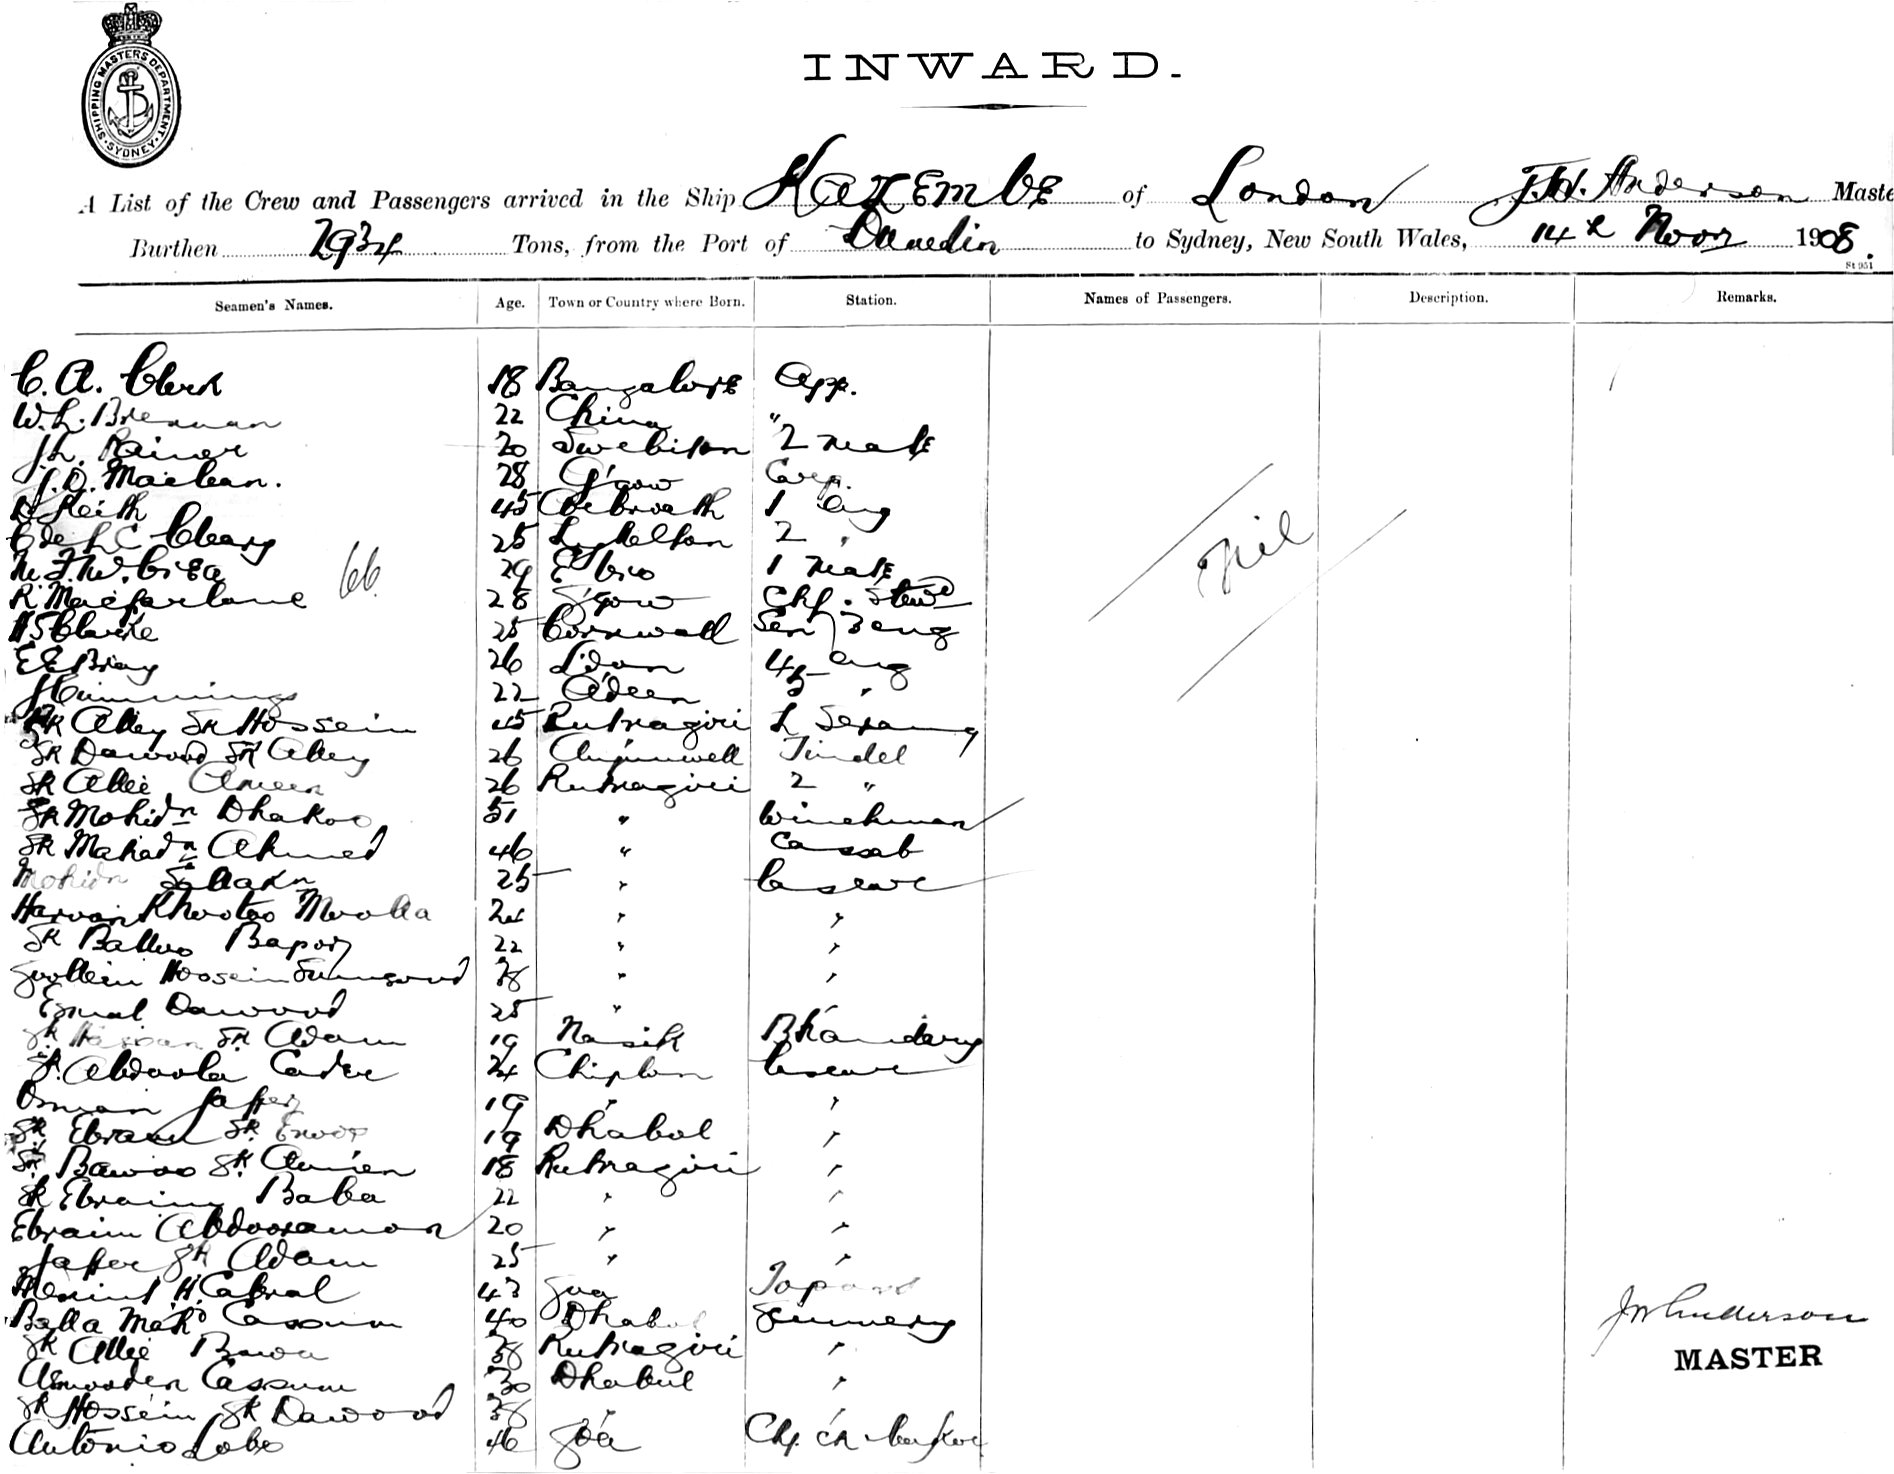 SHIPPING MASTERS DEPARTMENT
SYDNEY
INWARD.
A List of the Crew and Passengers arrived in the Ship Kazembe of London J.W. Anderson Maste
Burthen 2934 Tons, from the Port of Dunedin to Sydney, New South Wales, 14th Novr 1908.
St 951
Seamen's Names. Age. Town or Country where Born. Station. Names of Passengers. Description. Remarks.
C. A. Clerk 18 Bangalore App.
W. L. Brennan 22 China "
J. L. Rainer 20 2 mate
J. D. Maclean. 28 G'gow Carp.
D Keith 45 Arbroath 1 Eng
Cleary 25 2 "
29 1 mate
R Macfarlane 28 G'gow Chf. Stewd
Clarke 25 Cornwall 3 eng
E E Bray 26 L'don 4 eng
J Cummings 22 A'deen 5 "
SK Alley SK Hossein 45 Rutnagiri 1 Serang
SK Dawood SK Alley 26 Anjunwell Tindel
SK Allie Ameen 26 Rutnagiri 2 "
SK Mohidn Dhakoo 51 " Winchman
SK Mahadn Ahmed 46 " Cassab
Mohidn 25 " Lascar
Khootoo Moolla 24 " "
SK Balloo Bapoo 22 " "
Hossein 38 " "
Esmal Dawood 25 " "
SK Hassan SK Adam 19 Nasik Bhandary
SK. Abdoola Cader 24 Chiplun Lascar
Osman Jaffer 19 " "
SK. Ebraim SK. 19 Dhabol "
SK. Bawoo SK. Amien 18 Rutnagiri "
SK Ebraim Baba 22 " "
Ebraim Abdooramon 20 " "
Jaffer SK Adam 25 " "
H. Cabral 43 Goa Topass
Balla Mahd Cassum 40 Dhabol Gunnery
SK Allie Bawa 38 Rutnagiri "
Cassum 30 Dhabul "
SK Hossein SK Dawood 38 " "
Antonio Lobo 46 Goa Chf.
66
Nil
J W Anderson
MASTER